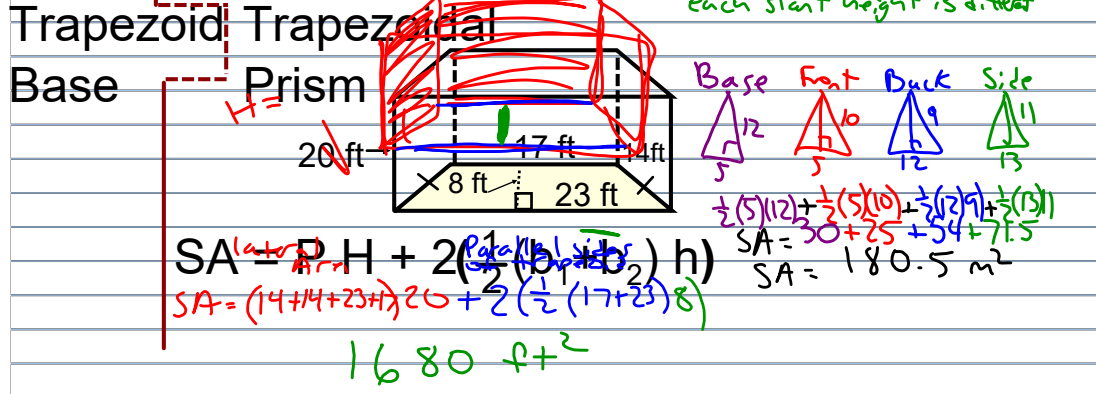 each slant height is different
Trapezoid Trapezoidal
Base Prism
H =
20 ft
17 ft
14ft
8 ft
23 ft
Base Front Back Side
12 10 9 11
5 5 12 13
½(5)(12) + ½(5)(10) + ½(12)9) + ½(13)11
SA = 30 + 25 + 54 + 71.5
SA = 180.5 m²
lateral Area
Parallel sides
SA = P H + 2(½(b₁+b₂) h)
SA = (14+14+23+17)20 + 2(½(17+23)8)
1680 ft²